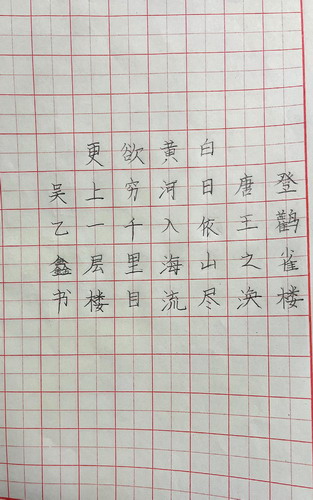 登鹳雀楼
唐王之涣
白日依山尽
黄河入海流
欲穷千里目
更上一层楼
吴乙鑫书